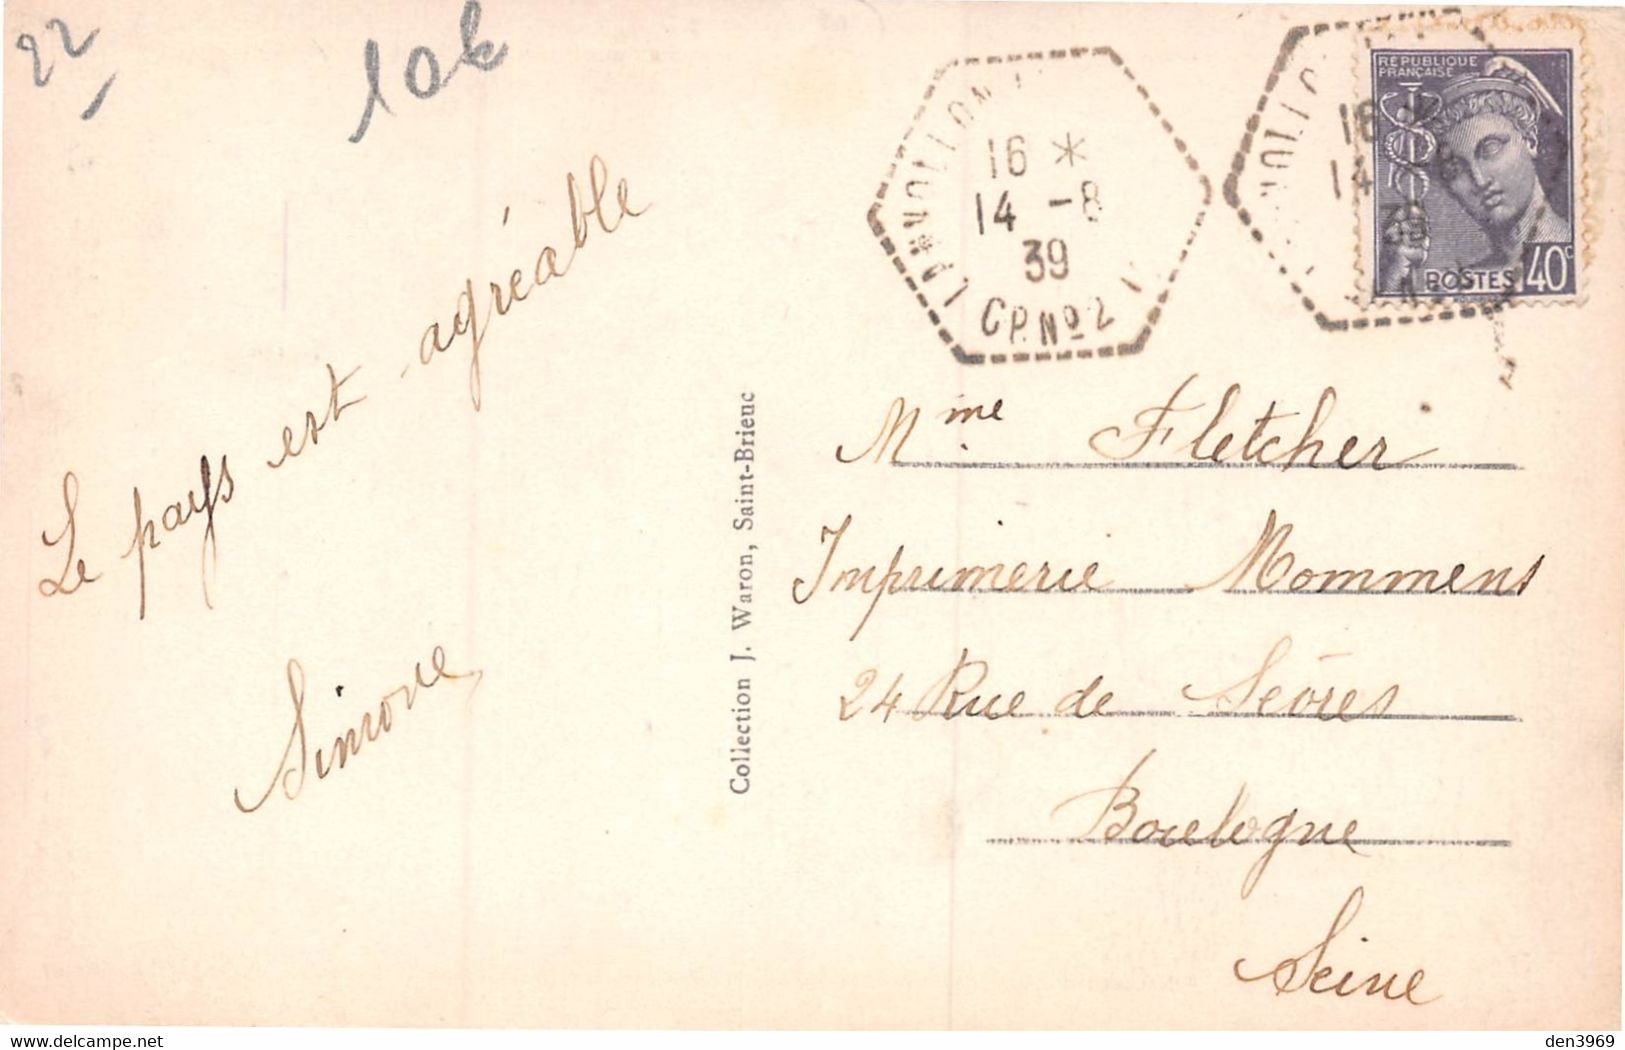 22
10k
16 *
14 -8
39
C.P. Nº 2
RÉPUBLIQUE
FRANÇAISE
POSTES 40c
Le pays est agréable
Simone
Collection J. Waron, Saint-Brieuc
Mme Fletcher
Imprimerie Mommens
24 Rue de Sèvres
Boulogne
Seine
delcampe.net
den3969